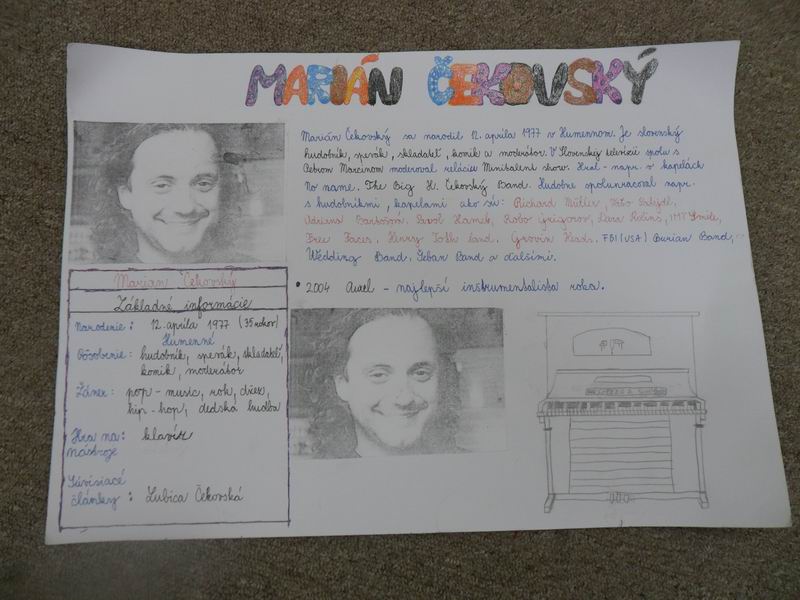 MARIÁN ČEKOVSKÝ
Marián Čekovský sa narodil 12. apríla 1977 v Humennom. Je slovenský
hudobník, spevák, skladateľ, komik a moderátor. V Slovenskej televízii spolu s
Petrom Marcinom moderoval reláciu Minitalent show. Hral - napr. v kapelách
No name. The Big H. Čekovský Band. Hudobne spolupracoval napr.
s hudobníkmi, kapelami ako sú: Richard Müller,
Adriena Bartošová, Pavol Hammel, Robo Grigorov, Dara Rolins, IMT Smile,
Free Faces, Henry Toth band. Groovin Heads. FBI (USA) Burian Band,
Wedding Band. Band a ďalšími.
• 2004 Aurel - najlepší inštrumentalista roka.
Marián Čekovský
Základné informácie
Narodenie: 12. apríla 1977 (35 rokov)
Humenné
Pôsobenie: hudobník, spevák, skladateľ,
komik, moderátor
Žáner: pop-music, rok, džez,
hip-hop, detská hudba
Hra na: klavír
nástroje
Súvisiace
články: Ľubica Čekovská